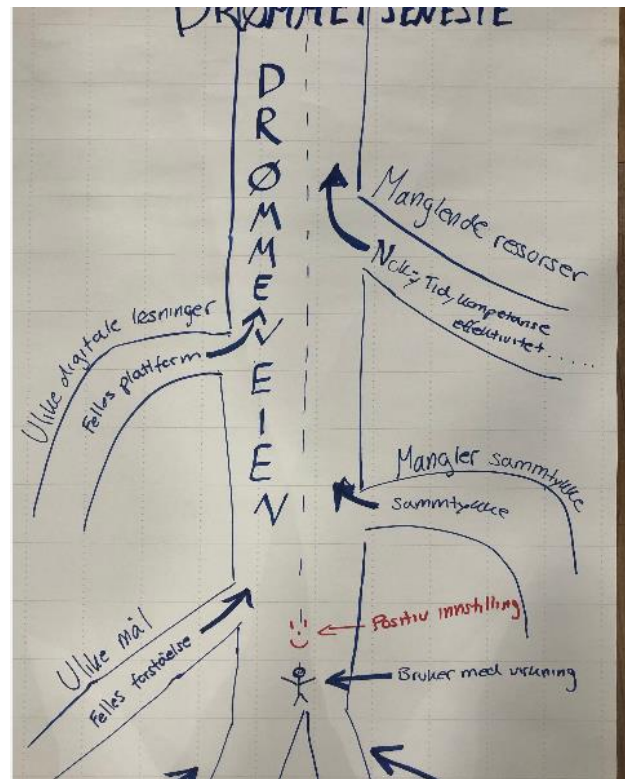 DRØMMETJENESTE
DRØMMEVEIEN
Manglende ressorser
Nok; Tid, kompetanse
effektivitet......
Ulike digitale løsninger
Felles plattform
Mangler sammtykke
Sammtykke
Positiv innstilling
Ulike mål
Felles forståelse
Bruker med virkning